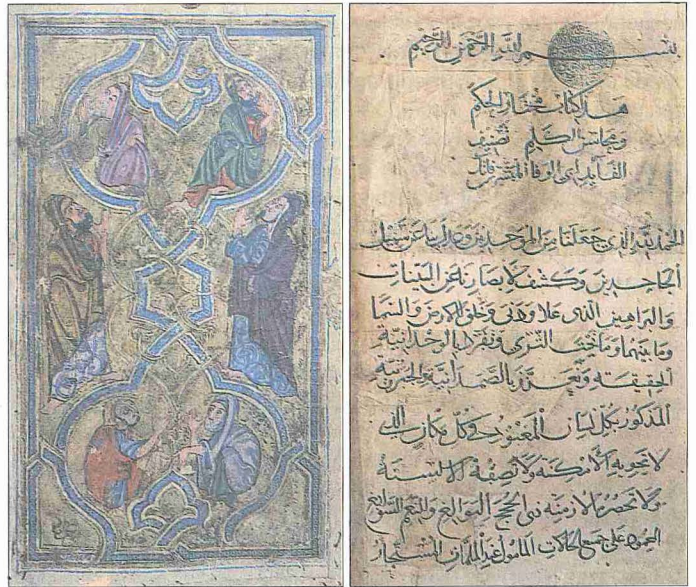 بسم الله الرحمن الرحيم
هذا كتاب مختار الحكم
ومحاسن الكلم تصنيف
القايد ابى الوفا المبشر بن فاتك
الحمد لله الذي جعلنا من الموحدين وعدل بنا عن سبيل
الجاحدين وكشف لابصارنا عن البينات
والبراهين الذي علا ودنى وخلق الارض والسما
وما بينهما وما تحت الثرى وتفرد بالوحدانية
الحقيقته وتعزز بالصمدانية
المذكور بكل لسان المعبود في كل مكان الذي
لا تحويه الامكنه ولا تصفه الالسنة
ولا تحصره الازمنه ذى الحجج البوالغ والنعم السوابغ
المحمود على جميع الحالات المامول عند الملمات المستجار